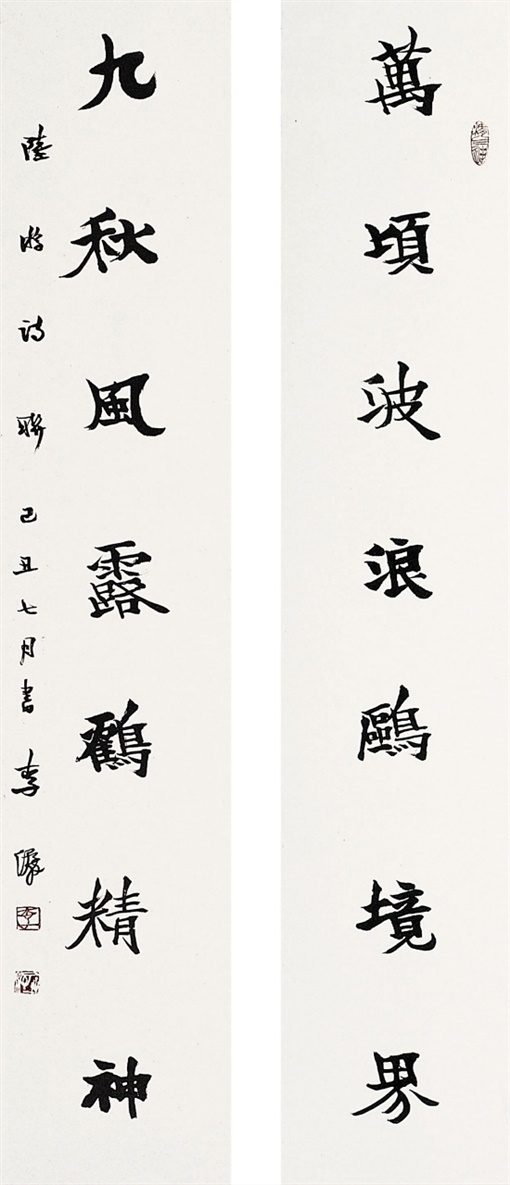 萬頃波浪鷗境界
九秋風露鶴精神
陸游诗聯己丑七月書李